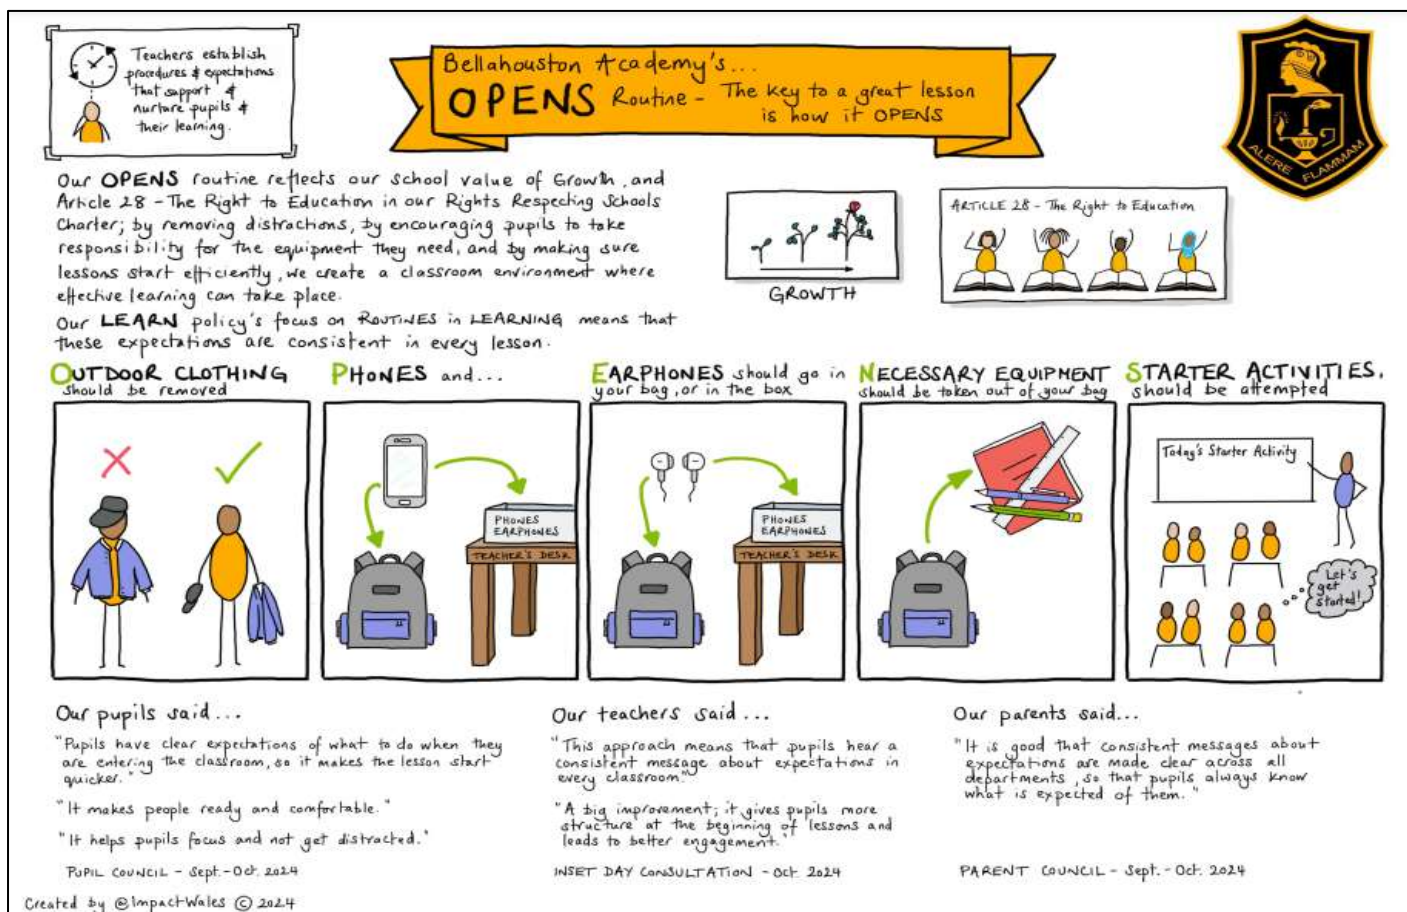 Teachers establish
procedures & expectations
that support &
nurture pupils &
their learning.
Bellahouston Academy's...
OPENS Routine - The key to a great lesson
is how it OPENS
ALERE FLAMMAM
Our OPENS routine reflects our school value of Growth, and
Article 28 - The Right to Education in our Rights Respecting Schools
Charter; by removing distractions, by encouraging pupils to take
responsibility for the equipment they need, and by making sure
lessons start efficiently, we create a classroom environment where
effective learning can take place.
Our LEARN policy's focus on ROUTINES in LEARNING means that
these expectations are consistent in every lesson.
GROWTH
ARTICLE 28 - The Right to Education
OUTDOOR CLOTHING
should be removed
PHONES and...
PHONES
EARPHONES
TEACHER'S DESK
EARPHONES should go in
your bag, or in the box
PHONES
EARPHONES
TEACHER'S DESK
NECESSARY EQUIPMENT
should be taken out of your bag
STARTER ACTIVITIES.
should be attempted
Today's Starter Activity
Let's
get
started!
Our pupils said...
"Pupils have clear expectations of what to do when they
are entering the classroom, so it makes the lesson start
quicker."
"It makes people ready and comfortable."
"It helps pupils focus and not get distracted."
PUPIL COUNCIL - Sept. - Oct. 2024
Our teachers said...
"This approach means that pupils hear a
consistent message about expectations in
every classroom."
"A big improvement; it gives pupils more
structure at the beginning of lessons and
leads to better engagement."
INSET DAY CONSULTATION - Oct. 2024
Our parents said...
"It is good that consistent messages about
expectations are made clear across all
departments, so that pupils always know
what is expected of them."
PARENT COUNCIL - Sept. - Oct. 2024
Created by @ImpactWales © 2024